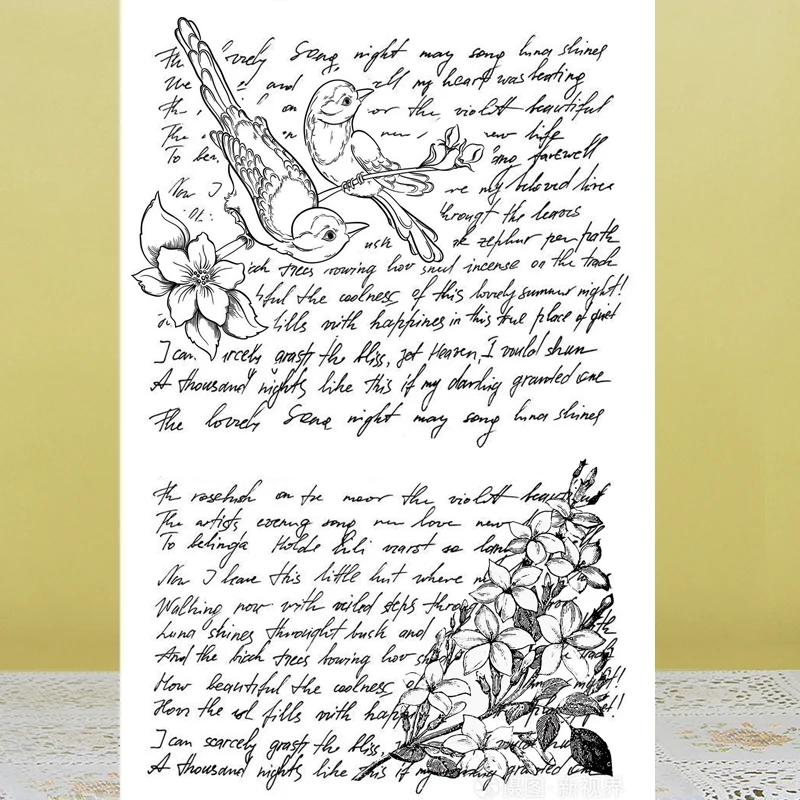 The lovely Song night may song luna shines
We and all my heart was beating
Th on or the violett beautiful
The new life
To be song farewell
Now I ve my beloved lives
througt the leaves
usk zephur per path
ich trees rowing hov sned incense on the track
tiful the coolness of this lovely summer night!
fills with happines in this true place of quiet
I can rcely grasp the bliss, jet Heaven, I vould shun
A thousand nights like this if my darling granted one
The lovely Song night may song luna shines
The rosebush on tse moor the violett beautiful
The artists evening song new love new
To belinda Holde Lili varst so lang
Now I leave this little hut where m
Walking now with veiled steps throug
Luna shines throught busk and
And the birch trees bowing hov s
How beautiful the coolness of
Hovs the sol fills with happ
I can scarcely grasp the bliss,
A thousand nights like this if my darling granted one
摄图·新视界